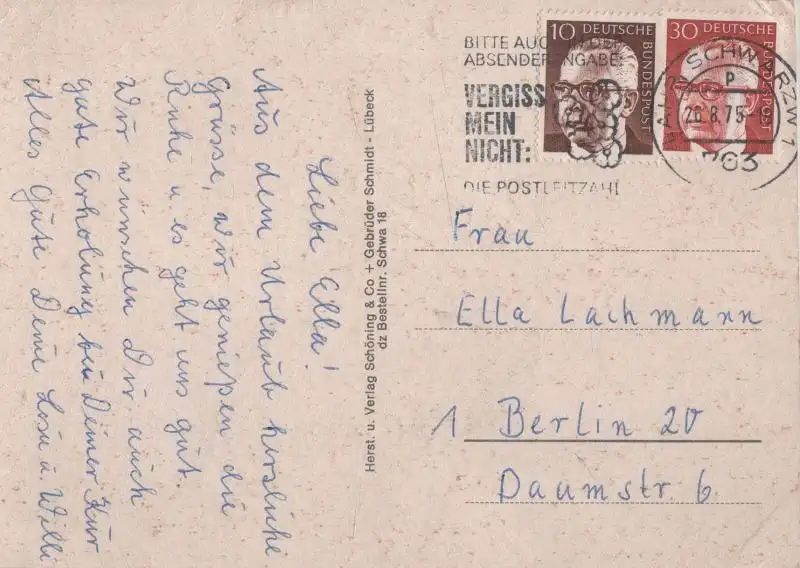 Liebe Ella!
Aus dem Urlaub herzliche
Grüsse, wir genießen die
Ruhe u es geht uns gut.
Wir wünschen Dir auch
gute Erholung bei Deiner Kur
Alles Gute Deine u. Willi
Herst. u. Verlag Schöning & Co + Gebrüder Schmidt - Lübeck
dz Bestellnr. Schwa 18
BITTE AUCH IN DER
ABSENDERANGABE:
VERGISS
MEIN
NICHT:
DIE POSTLEITZAHL
10 DEUTSCHE
BUNDESPOST
30 DEUTSCHE
BUNDESPOST
SCHWARZW 1
P
26.8.75
Frau
Ella Lachmann
1 Berlin 20
Daumstr. 6